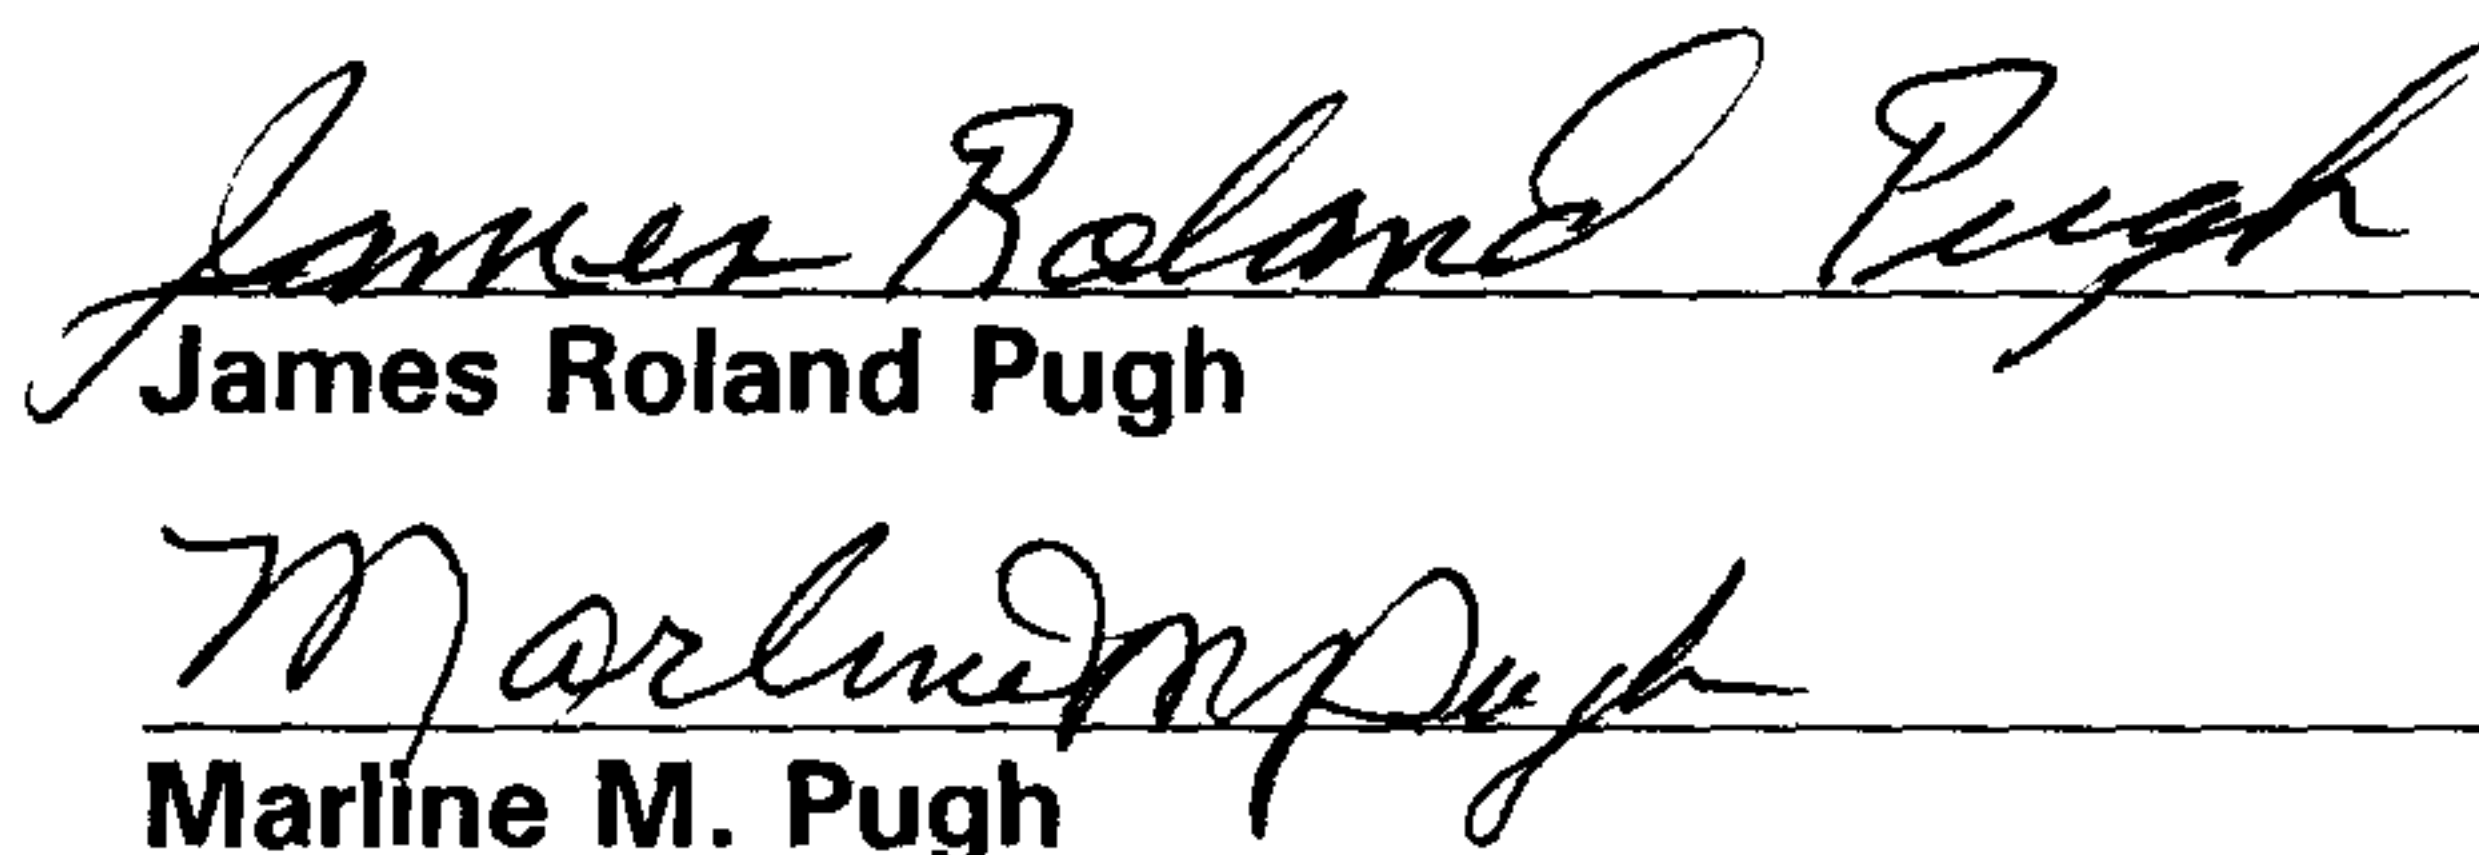 James Roland Pugh
James Roland Pugh
Marline M Pugh
Marline M. Pugh